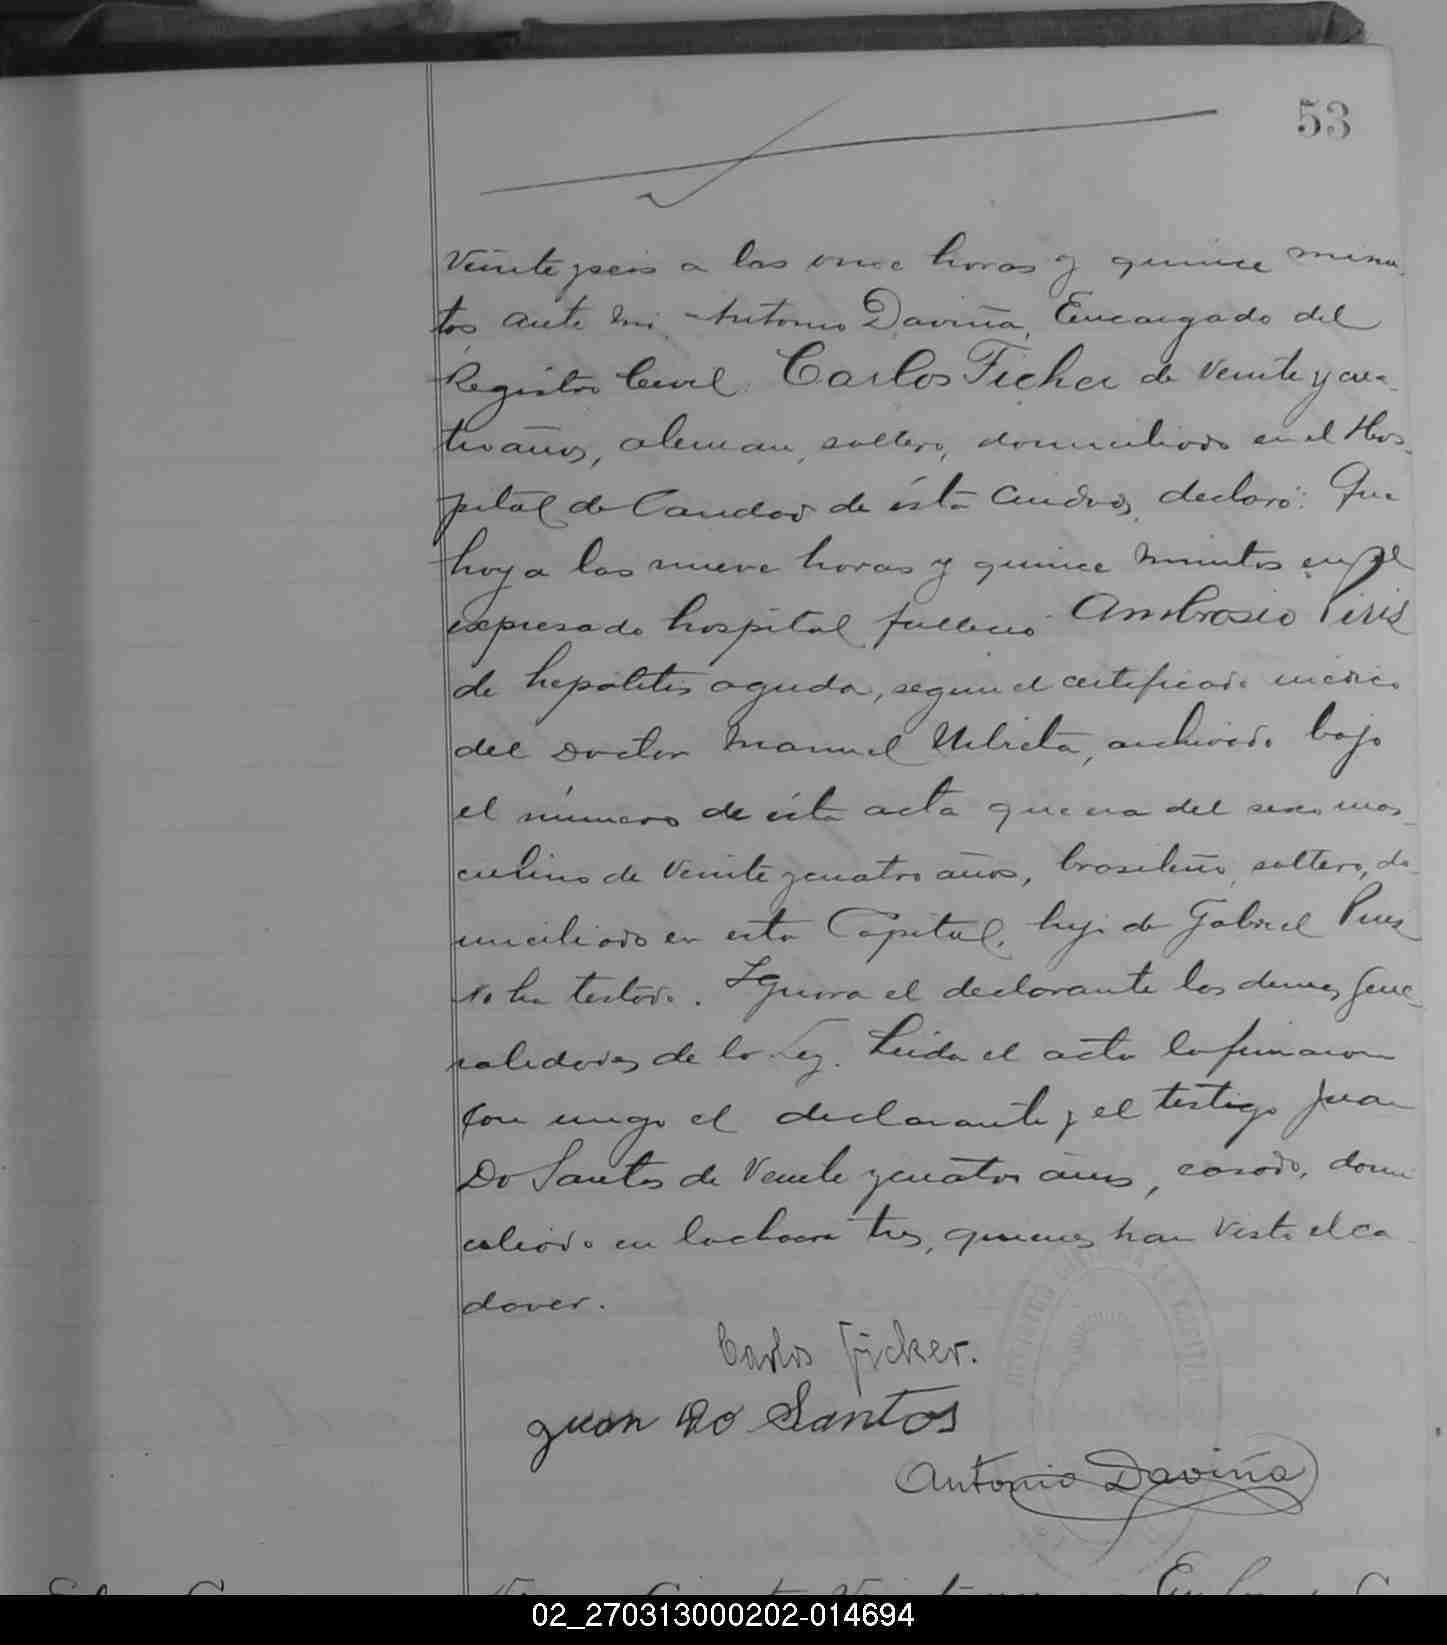 53
Veinte y seis a las once horas y quince minu-
tos ante mi Antonio Daviña, Encargado del
Registro Civil Carlos Ficher de veinte y cua-
tro años, aleman, soltero, domiciliado en el Hos-
pital de Caridad de ésta Ciudad, declaró: Que
hoy a las nueve horas y quince minutos en el
expresado hospital falleció Ambrosio Piris
de hepatitis aguda, segun el certificado médico
del Doctor Manuel Urbieta, archivado bajo
el número de ésta acta que era del sexo mas-
culino de veinte y cuatro años, brasileño, soltero, do-
miciliado en esta Capital, hijo de Gabriel Piris
No ha testado. Ignora el declarante las demas gene-
ralidades de la Ley. Leida el acta la firmaron
con migo el declarante y el testigo Juan
Do Santos de veinte y cuatro años, casado, domi
ciliado en la chacra tres, quienes han visto el ca
daver.
Carlos Ficker.
Juan Do Santos
Antonio Daviña
02_270313000202-014694